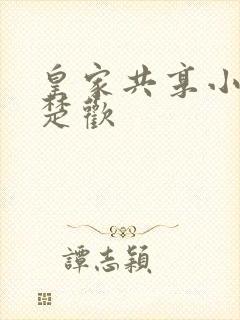 皇家共享小
楚歡
譚志穎